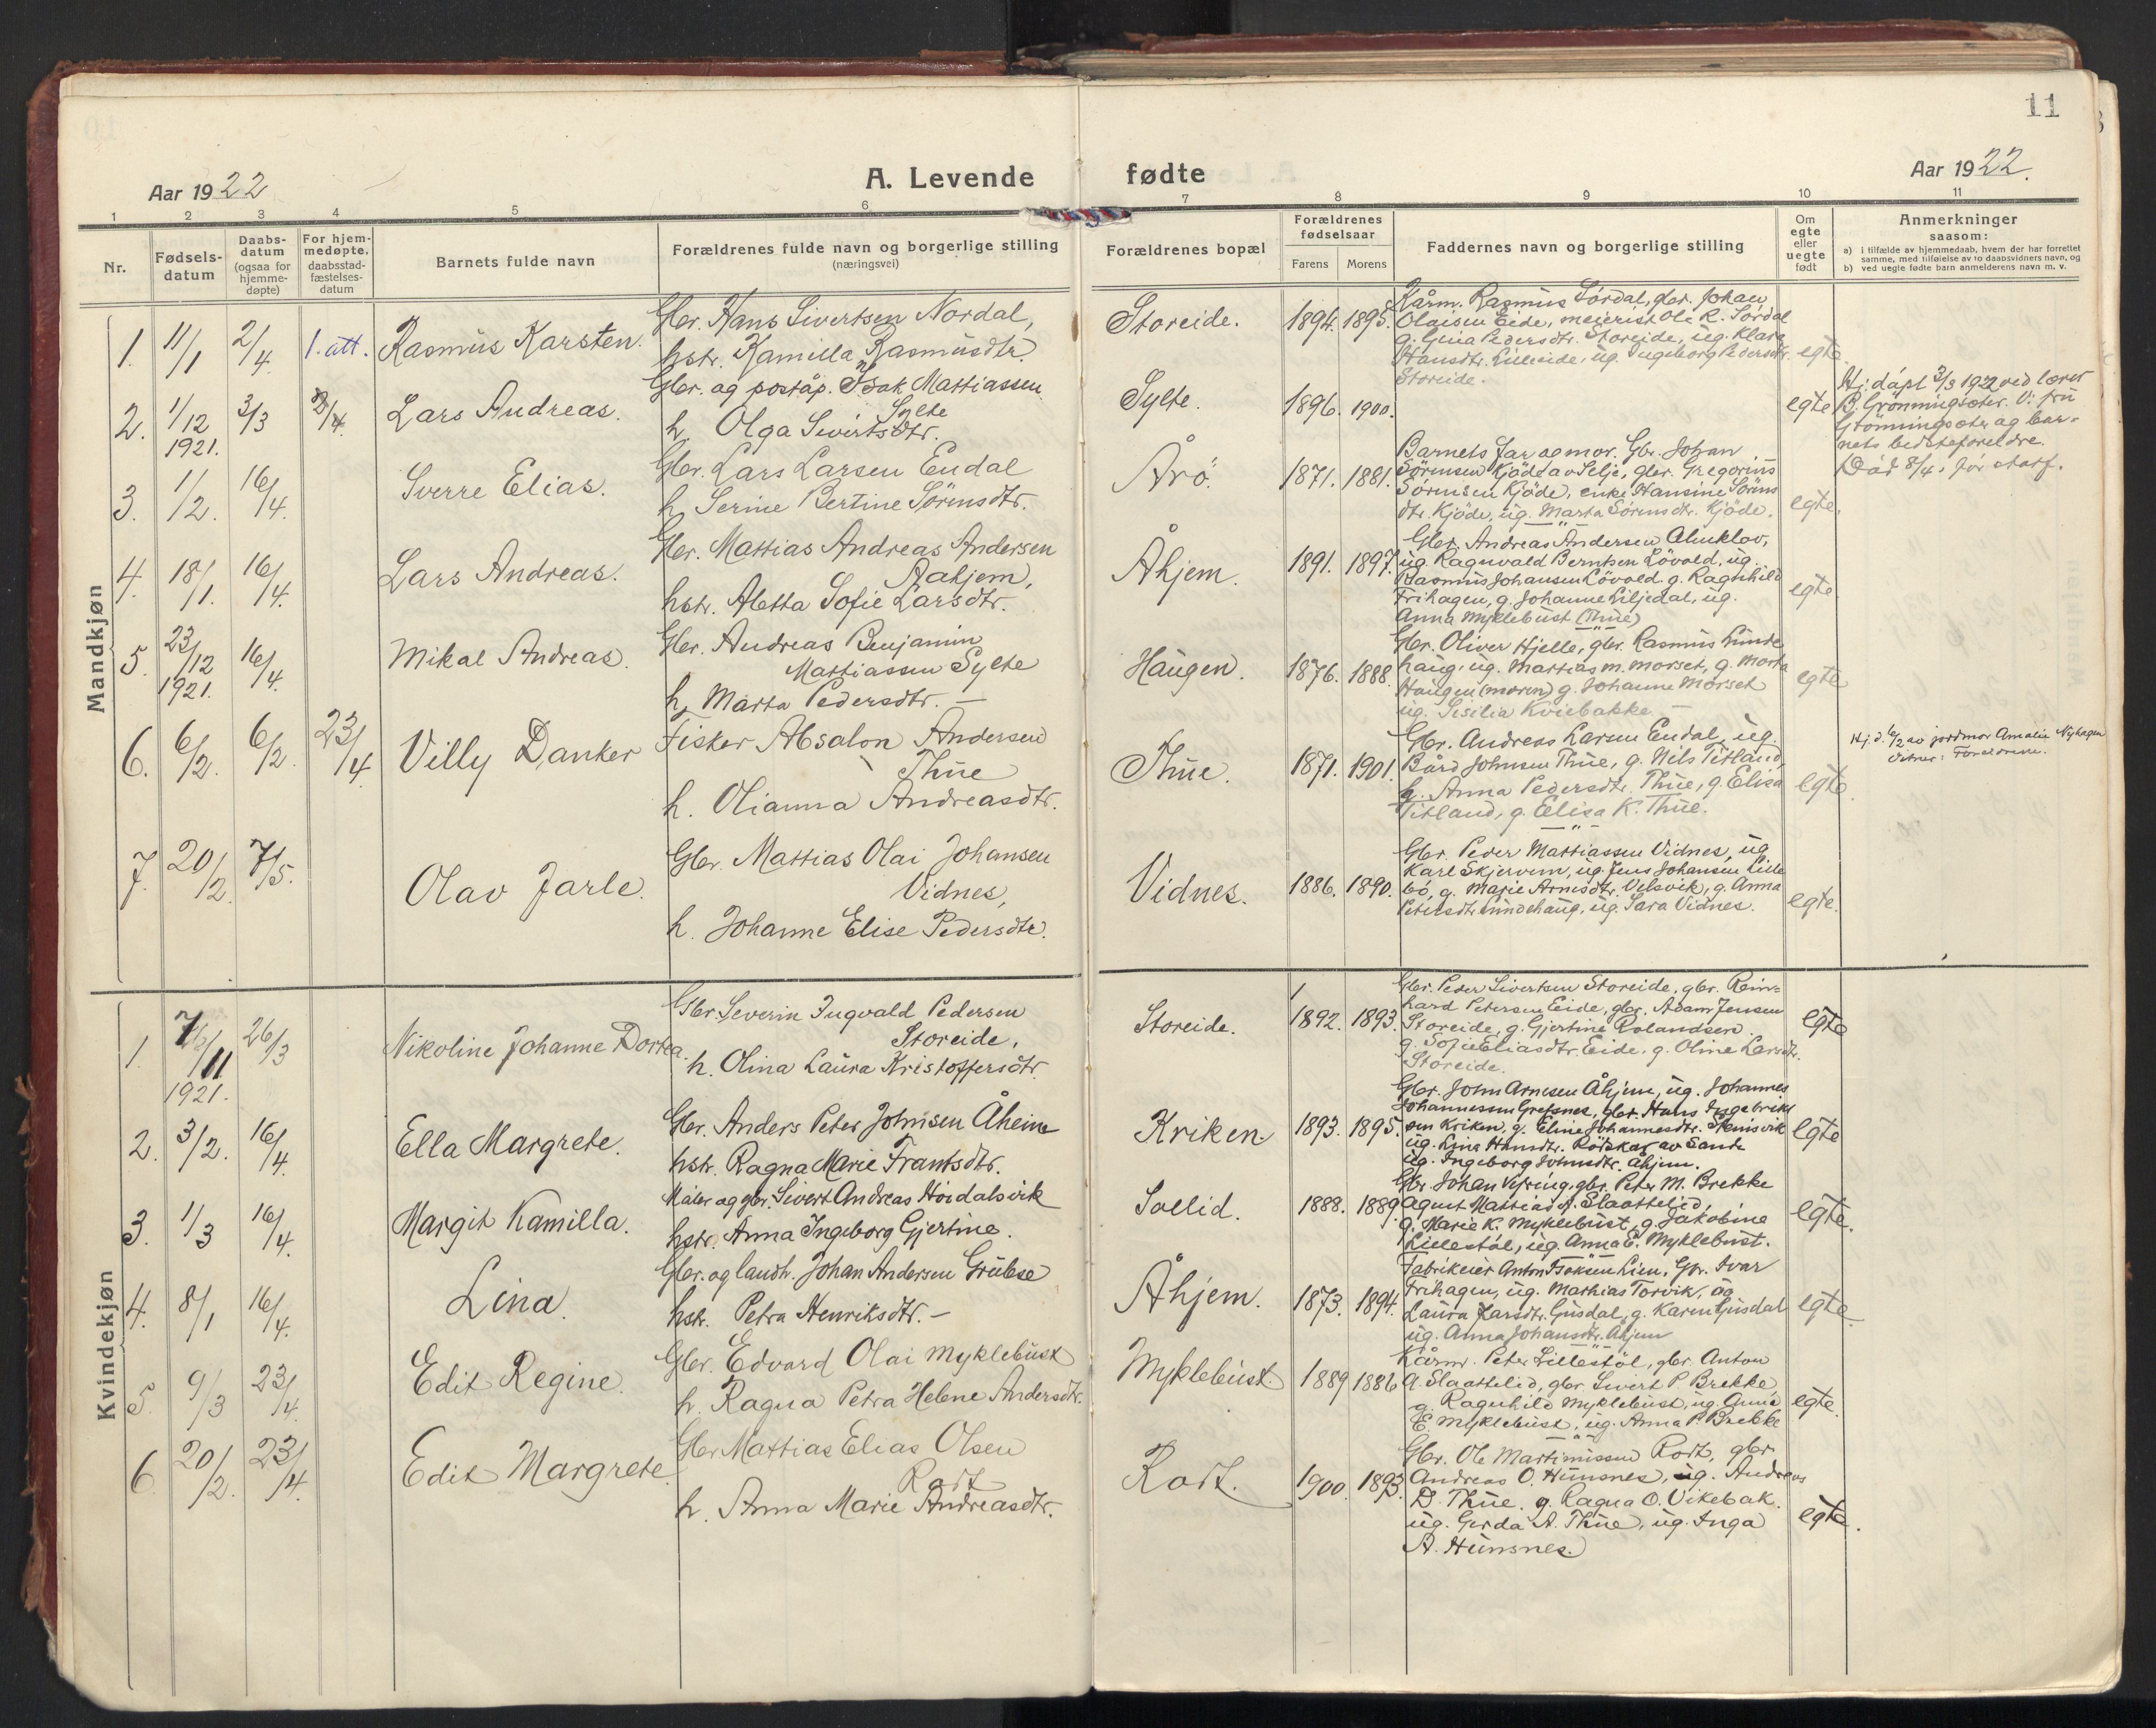 11
Aar 1922
A. Levende fødte
Aar 1922.
1 2 3 4 5 6 7 8 9 10 11
Nr.
Fødsels-
datum
Daabs-
datum
(ogsaa for
hjemme-
døpte)
For hjem-
medøpte,
daabsstad-
fæstelses-
datum
Barnets fulde navn
Forældrenes fulde navn og borgerlige stilling
(næringsvei)
Forældrenes bopæl
Forældrenes
fødselsaar
Farens Morens
Faddernes navn og borgerlige stilling
Om
egte
eller
uegte
født
Anmerkninger
saasom:
a) i tilfælde av hjemmedaab, hvem der har forrettet
samme, med tilføielse av to daabsvidners navn, og
b) ved uegte fødte barn anmelderens navn m. v.
Mandkjøn
1. 11/1 2/4. 1. att. Rasmus Karsten.
Gbr. Hans Sivertsen Nordal,
hstr. Kamilla Rasmusdtr.
Storeide. 1894. 1895.
Kårm. Rasmus Sørdal, gbr. Johan
Olaisen Eide, meierist Ole R. Sørdal
g. Gina Pedersdtr. Storeide, ug. Klara
Hansdtr. Lilleeide, ug. Ingeborg Pedersdtr.
Storeide.
egte
2. 1/12 1921. 3/3 2/4. Lars Andreas.
Gbr. og poståp. Isak Mattiassen
Sylte
h. Olga Sivertsdtr.
Sylte. 1896. 1900.
egte
Hj. døpt 3/3 1922 ved lærer
B. Grønningsæter. V: fru
Grønningsæter og bar-
nets bedsteforeldre.
Død 8/4. før stadf.
3. 1/2. 16/4. Sverre Elias.
Gbr. Lars Larsen Endal
h. Serine Bertine Sørensdtr.
Årö. 1871. 1881.
Barnets far og mor. Gbr. Johan
Sørensen Kjøde av Selje, gbr. Gregorius
Sørensen Kjøde, enke Hansine Sørens
dtr. Kjøde, ug. Marta Sørensdtr. Kjøde.
egte.
4. 18/1. 16/4. Lars Andreas.
Gbr. Mattias Andreas Andersen
Aahjem,
hstr. Aletta Sofie Larsdtr.
Åhjem. 1891. 1897.
Gbr. Andreas Andersen Almklov,
ug. Ragnvald Berntsen Løvold, ug.
Rasmus Johansen Løvold g. Ragnhild
Frihagen, g. Johanne Liljedal, ug.
Anna Myklebust (Thue)
egte
5. 23/12 1921. 16/4. Mikal Andreas.
Gbr. Andreas Benjamin
Mattiassen Sylte
h. Marta Pedersdtr. —
Haugen. 1876. 1888.
Gbr. Oliver Hjelle, gbr. Rasmus Linde
haug, ug. Mattias M. Morset, g. Marta
Haugen (moren) g. Johanne Morset
ug. Sisilia Kviebakke —
egte
6. 6/2. 6/2. 23/4 Villy Danker
Fisker Absalon Andersen
Thue
h. Olianna Andreasdtr.
Thue. 1871. 1901.
Gbr. Andreas Larsen Endal, ug.
Bård Johnsen Thue, g. Nils Titland,
g. Anna Pedersdtr. Thue, g. Elisa
Titland, g. Elisa K. Thue.
egte.
Hj. d. 6/2 av jordmor Amalie Nyhagen
Vitner: Foreldrene.
7. 20/2. 7/5. Olav Jarle.
Gbr. Mattias Olai Johansen
Vidnes,
h. Johanne Elise Pedersdtr.
Vidnes. 1886. 1890.
Gbr. Peder Mattiassen Vidnes, ug
Karl Skjerven, ug. Jens Johansen Lille
bö, g. Marie Arnesdtr. Velsvik, g. Anna
Petersdtr. Lindehaug, ug. Sara Vidnes.
egte.
Kvindekjøn
1. 7/11 1921. 26/3 Nikoline Johanne Dortea.
Gbr. Severin Ingvald Pedersen
Storeide.
h. Olina Laura Kristoffersdtr.
Storeide. 1892. 1893.
Gbr. Peder Sivertsen Storeide, gbr. Rein-
hard Petersen Eide, gbr. Adam Jensen
Storeide, g. Gjertine Rolandsen.
g. Sofie Eliasdtr. Eide. g. Oline Larsdtr.
Storeide.
egte
2. 3/2. 16/4. Ella Margrete.
Gbr. Anders Peter Johnsen Åheim
hstr. Ragna Marie Frantsdtr.
Kriken 1893. 1895.
Gbr. John Arnesen Åhjem, ug. Johannes
Johannessen Grefsnes, gbr. Hans Ingebrikt
sen Kriken g. Eline Johannesdtr.
ug. Lina Hansdtr. Röiskar av Sande
ug. Ingeborg Johnsdtr. Åhjem.
egte
3. 1/3 16/4. Margit Kamilla.
Maler og gbr. Sivert Andreas Hoidalsvik
hstr. Anna Ingeborg Gjertine.
Sollid. 1888. 1889.
Gbr. Johan Vefring, gbr. Peter M. Brekke
Agent Mattias A. Slaattelid,
g. Marie K. Myklebust, g. Jakobine
Lillestøl, ug. Anna E. Myklebust.
egte.
4. 8/1 16/4. Lina.
Gbr. og landh. Johan Andersen Grubse
hstr. Petra Henriksdtr. —
Åhjem. 1873. 1894.
Fabrikeier Anton Isaksen Lien, Gbr. Ivar
Frihagen, ug. Mathias Torvik, ug
Laura Larsdtr. Gusdal, g. Karen Gusdal
ug. Anna Johansdtr. Åhjem
egte
5. 9/3 23/4. Edit Regine.
Gbr. Edvard Olai Myklebust
h. Ragna Petra Helene Andersdtr.
Myklebust 1889 1886
Kårm. Peter Lillestöl, gbr. Anton
A. Slaattelid, gbr. Sivert P. Brekke,
g. Ragnhild Myklebust, ug. Anna
E. Myklebust, ug. Anna P. Brekke
egte.
6. 20/2. 23/4. Edit Margrete
Gbr. Mattias Elias Olsen
Rort
h. Anna Marie Andreasdtr.
Rort. 1900. 1893.
Gbr. Ole Martinussen Rort, gbr.
Andreas O. Hunsnes, ug. Andreas
D. Thue. g. Ragna O. Vikebak.
ug. Gerda A. Thue, ug. Inga
A. Hunsnes.
egte.